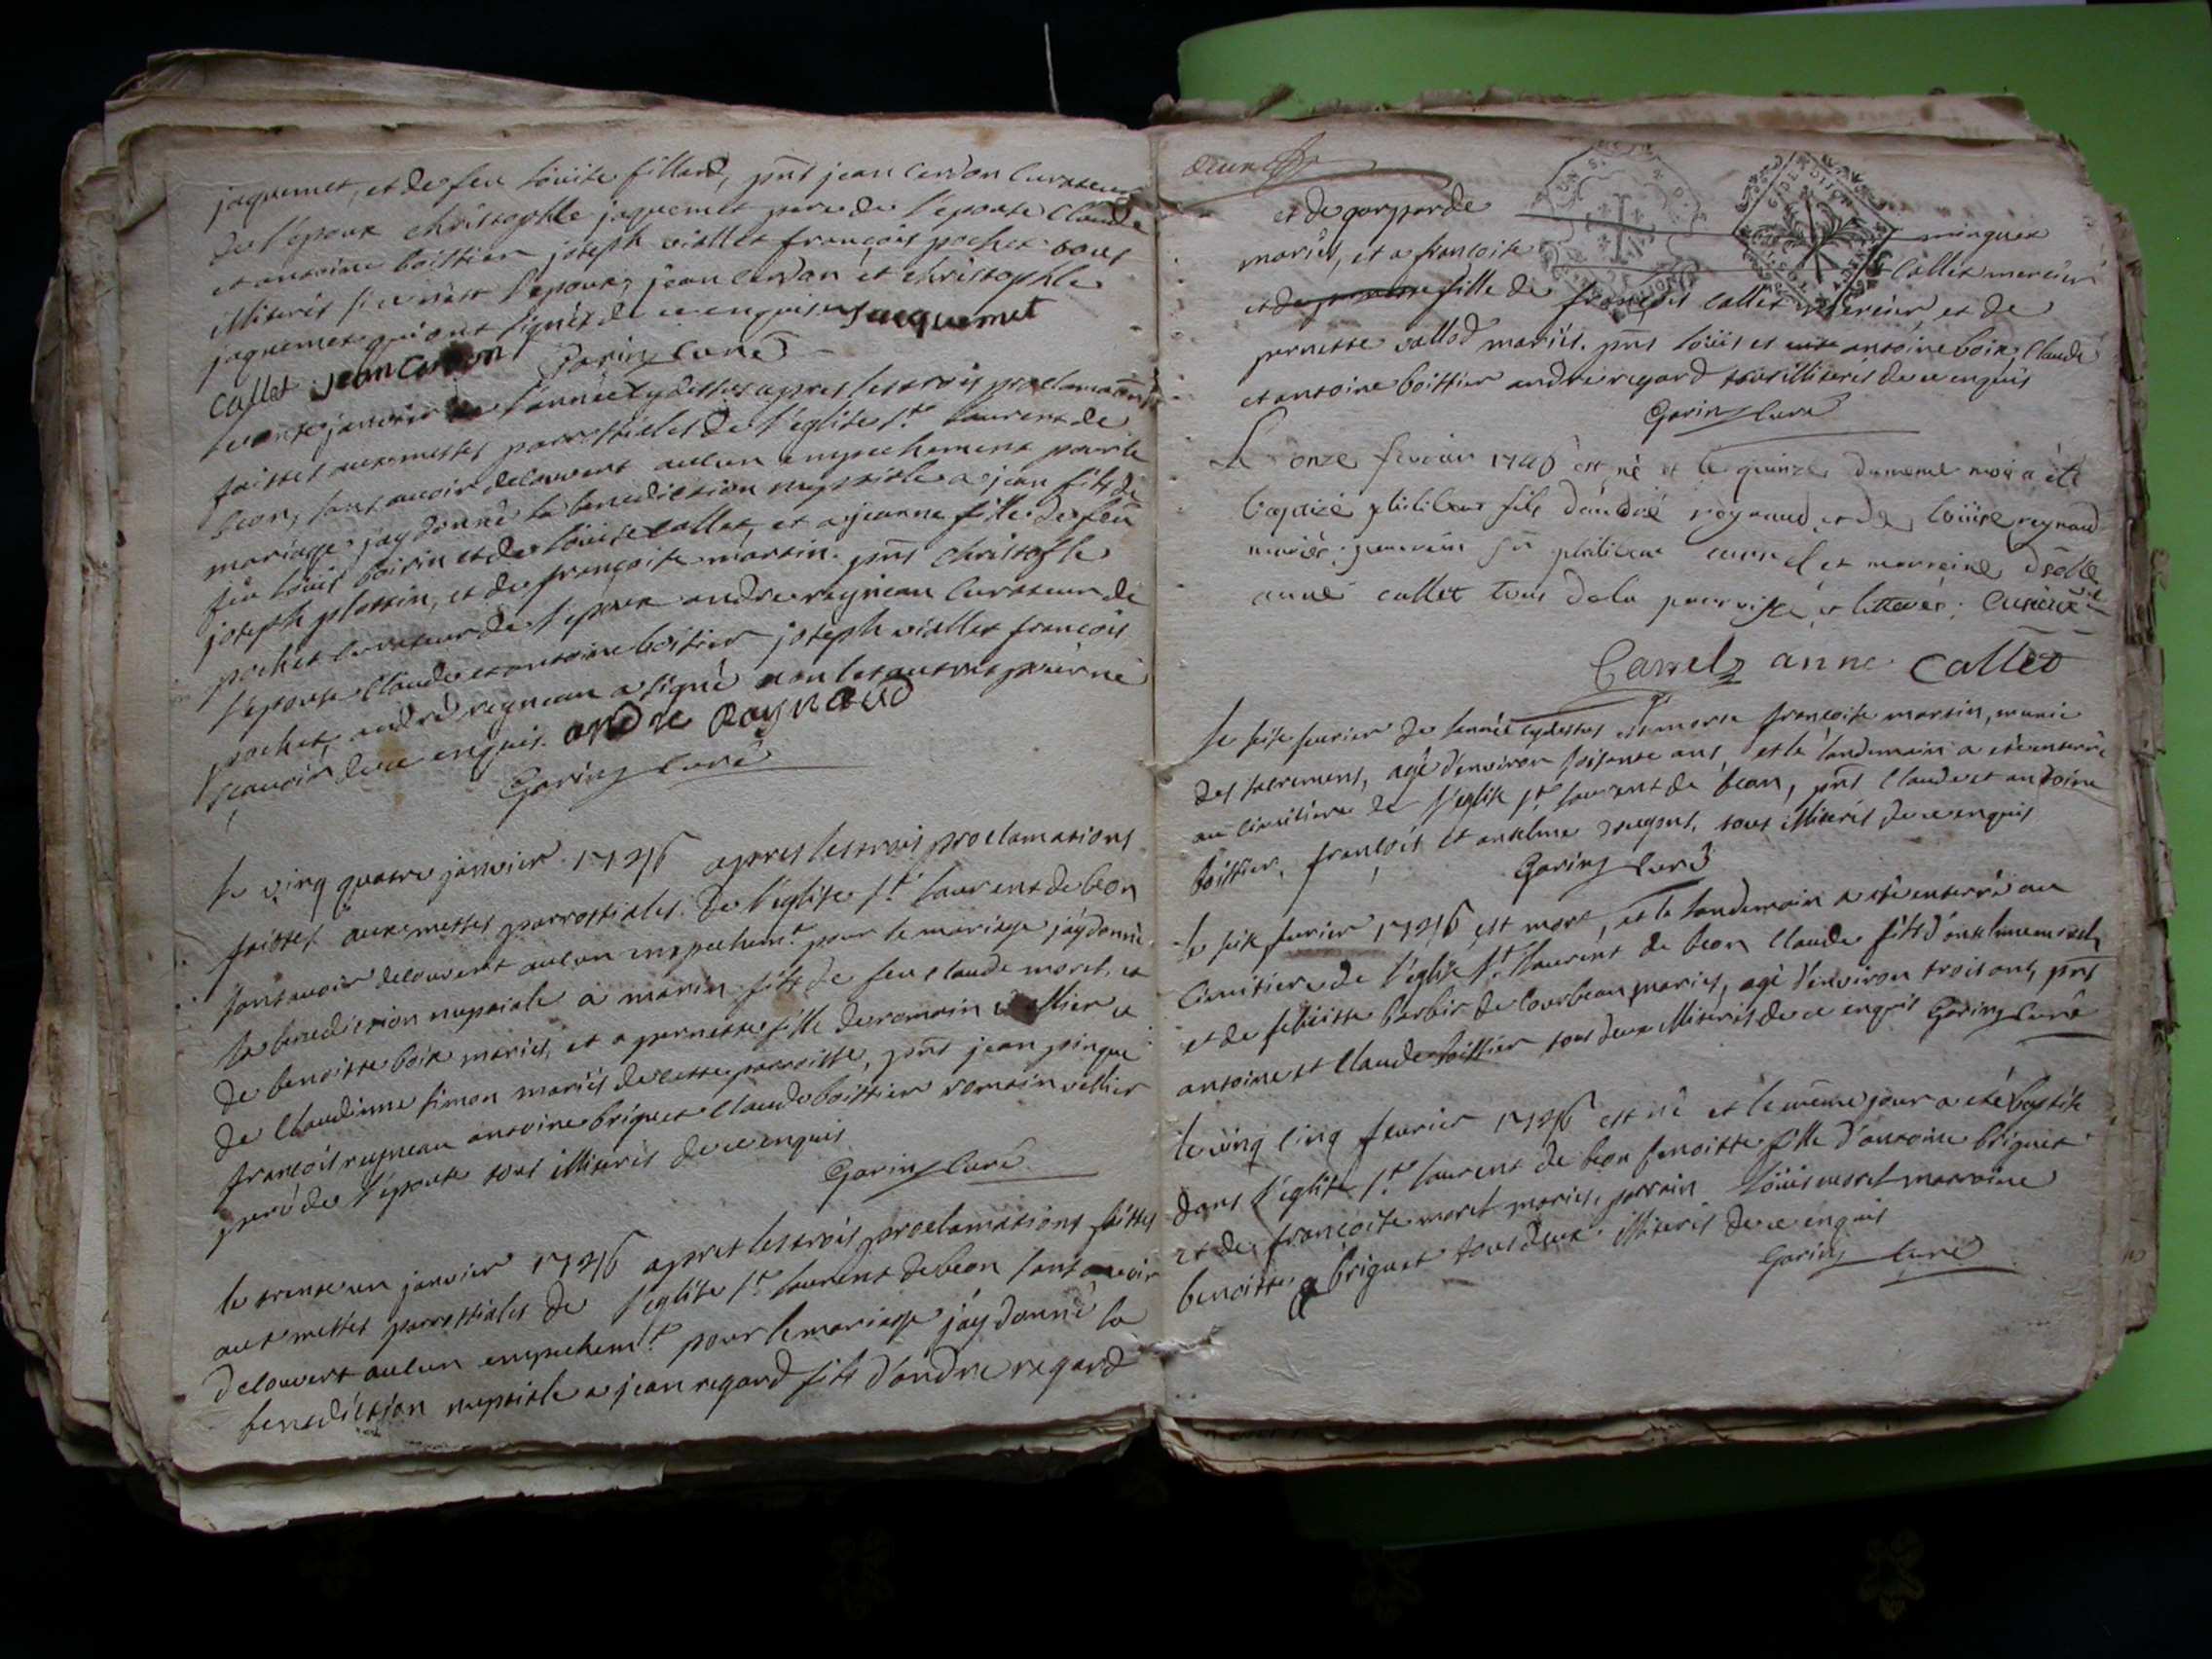 jaquemet, et de feu loüise fillard, pnts jean cerdon curateur
de l'epoux christophle jaquemet pere de l'epouse claude
et antoine boittier joseph viallet françois pochet tous
illiterés si ce n'est l'epoux, jean cerdon et christophle
jaquemet qui ont signés de ce enquis Jacquemet
Callet jean cerdon Garin curé
le onze janvier de l'année cy dessus apres les trois proclamaons
faittes aux messes parrossiales de l'eglise st laurent de
beon, sans avoir decouvert aucun empechement pour le
mariage j'ay donné la benediction nuptiale a jean fils de
feu loüis boirin et de loüise callet, et a jeanne fille de feu
joseph plattin, et de françoise martin. pnts christofle
pochet curateur de l'epoux andre reyneau curateur de
l'epouse claude et antoine boittier joseph viallet françois
pochet, andré reyneau a signé non les autres pour ne
sçavoir de ce enquis. andre Raynaud
Garin curé
le vinq quatre janvier 1746 apres les trois proclamations
faittes aux messes parrossiales de l'eglise st laurent de beon
sans avoir decouvert aucun empechemt pour le mariage j'ay donné
la benediction nuptiale a marin fils de feu claude moret, et
de benoitte boix mariés, et a pernette fille de romain vallier et
de claudinne simon mariés de cette parroisse, pnts jean pingue
françois reyneau antoine briguet claude boittier romain vallier
pere de l'epouse tous illiterés de ce enquis
Garin curé
le trente un janvier 1746 apres les trois proclamations faittes
aux messes parrossiales de l'eglise st laurent de beon sans avoir
decouvert aucun empechemt pour le mariage j'ay donné la
benediction nuptiale a jean regard fils d'andre regard
deux
et de gasparde minguet
mariés, et a françoise callet mercier
et de pernette fille de françois callet mercier et de
pernette vallod mariés. pnts loüis et antoine boix, claude
et antoine boittier andré regard tous illiterés de ce enquis
Garin curé
Le onze fevrier 1746 est né et le quinze du meme mois a été
baptizé philibert fils d'andré reynaud et de loüise reynaud
mariés. parrein sr philibert carrel et marreine dselle
anne callet tous de la parroisse et lettrés.
Carrel anne Callet
le seize fevrier de l'année cy dessus est morte françoise martin, munie
des sacrements, agé d'environ soixante ans, et le landemain a eté enterrée
au cimitiere de l'eglise st laurent de beon, pnts claude et antoine
boittier, françois et anselme tous illiterés de ce enquis
Garin curé
le six fevrier 1746 est mort, et le landemain a eté enterré au
cimitiere de l'eglise st laurent de beon claude fils d'anselme
et de felicitte barbir de courbeau mariés, agé d'environ trois ans, pnts
antoine et claude boittier tous deux illiterés de ce enquis Garin curé
le vinq cinq fevrier 1746 est né et le même jour a eté baptisé
dans l'eglise st laurent de beon benoitte fille d'antoine briguet
et de françoise moret mariés. parrain loüis moret marraine
benoitte briguet tous deux illiterés de ce enquis
Garin curé